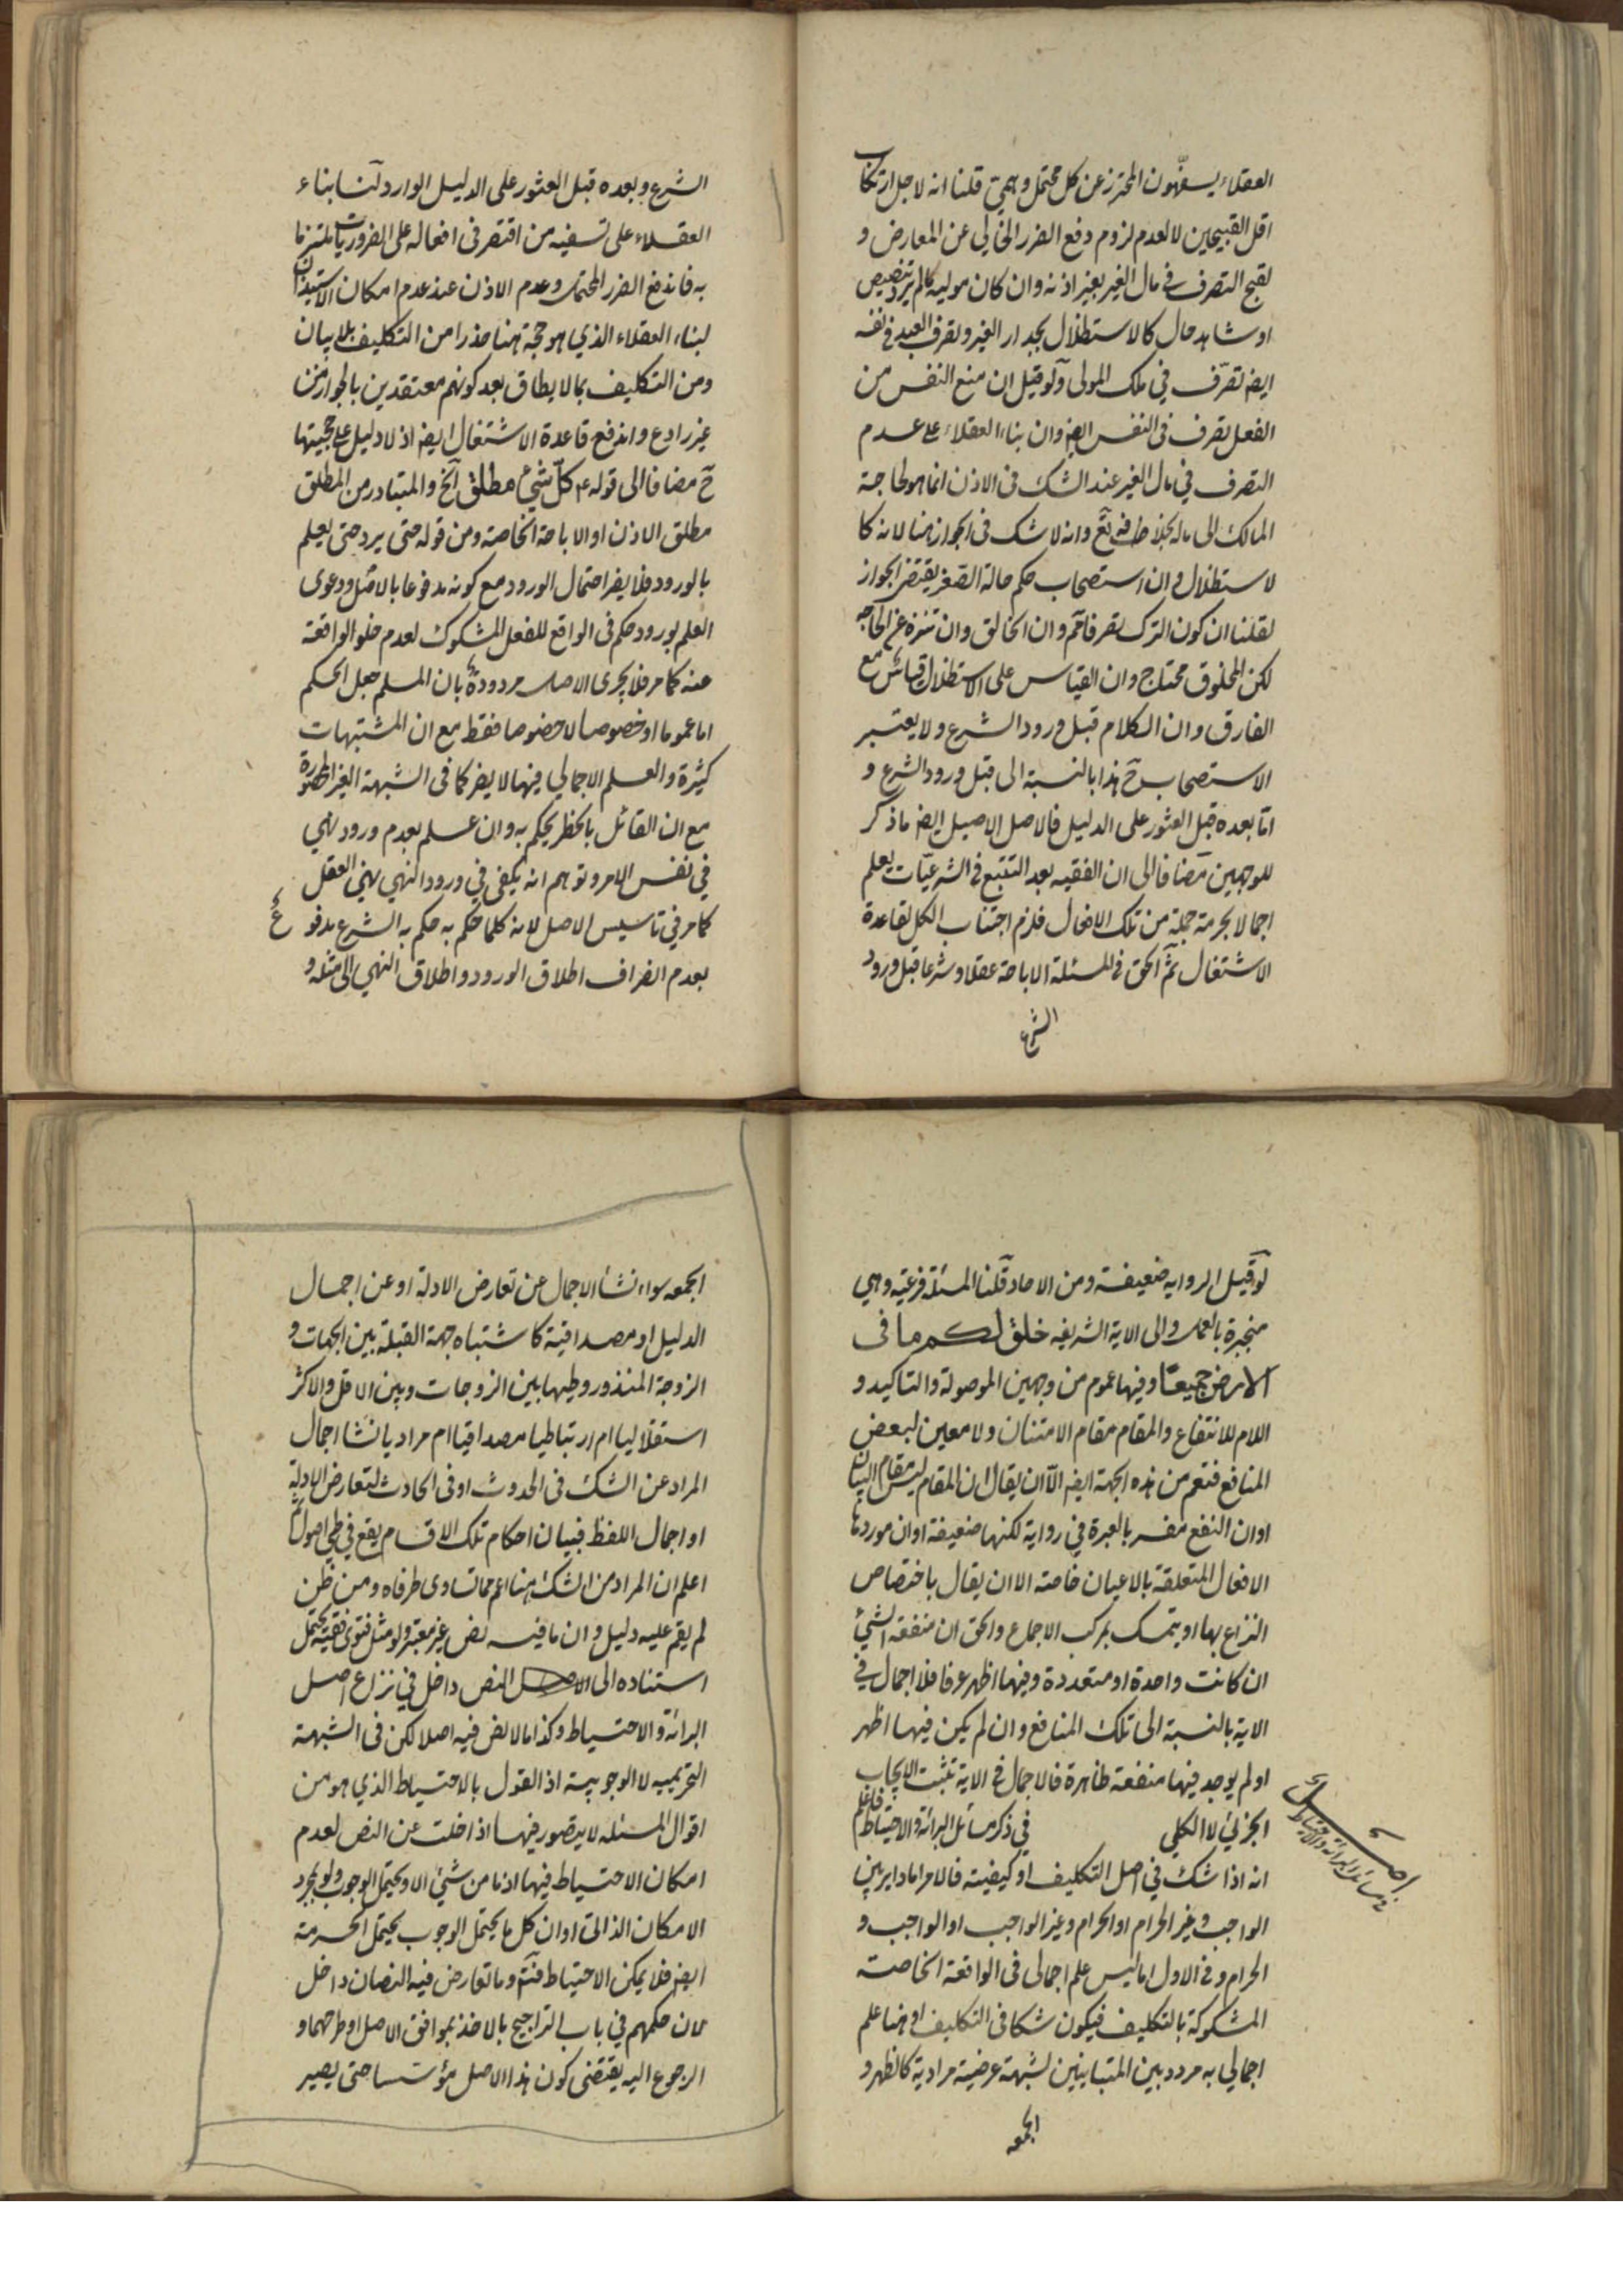 العقلاء يسفّهون المحترز عن كل محتمل وهمي قلنا انه لاجل ارتكاب
اقل القبيحين لا لعدم لزوم دفع الضرر الخالي عن المعارض و
لقبح التصرف في مال الغير بغير اذنه وان كان موليه كما لم يرد ترخيص
او شاهد حال كالاستظلال بجدار الغير وتصرف العبد في نفسه
ايضا تصرّف في ملك المولى ولو قيل ان منع النفس من
الفعل تصرف في النفس ايضا وان بناء العقلاء على عدم
التصرف في مال الغير عند الشك في الاذن انما هو لحاجة
المالك الى ماله بخلافه تع وانه لا شك في الجواز هنا لانه كا
لاستظلال وان استصحاب حكم حالة الصغر يقتضي الجواز
لقلنا ان كون الترك تصرفا تم وان الخالق وان تنزه عن الحاجه
لكن المخلوق محتاج وان القياس على الاستظلال قياس مع
الفارق وان الكلام قبل ورود الشرع ولا يعتبر
الاستصحاب ح هذا بالنسبة الى قبل ورود الشرع و
امّا بعده قبل العثور على الدليل فالاصل الاصيل ايضا ما ذكر
للوجهين مضافا الى ان الفقيه بعد التتبع في الشرعيّات يعلم
اجمالا بحرمة جملة من تلك الافعال فلزم اجتناب الكل لقاعدة
الاشتغال ثمّ الحق في المسئلة الاباحة عقلا وشرعا قبل ورود
الشرع
الشرع وبعده قبل العثور على الدليل الوارد لنا بناء
العقلاء على تسفيه من اقتصر في افعاله على الضروريات ملتزما
به فاندفع الضرر المحتمل وعدم الاذن عند عدم امكان الاستيذان
لبناء العقلاء الذي هو حجة هنا حذرا من التكليف بلا بيان
ومن التكليف بما لا يطاق بعد كونهم معتقدين بالجواز من
غير رادع واندفع قاعدة الاشتغال ايضا اذ لا دليل على حجيتها
ح مضافا الى قوله ع كلّ شيء مطلق الخ والمتبادر من المطلق
مطلق الاذن او الاباحة الخاصة ومن قوله حتى يرد حتى يعلم
بالورود فلا يضر احتمال الورود مع كونه مدفوعا بالاصل ودعوى
العلم بورود حكم في الواقع للفعل المشكوك لعدم خلو الواقعة
عنه كما مر فلا يجري الاصل مردودة بان المسلم جعل الحكم
اما عموما او خصوصا لا خصوصا فقط مع ان المشتبهات
كثيرة والعلم الاجمالي فيها لا يضر كما في الشبهة الغير المحصورة
مع ان القائل بالحظر يحكم به وان علم بعدم ورود نهي
في نفس الامر وتوهم انه يكفي في ورود النهي نهي العقل
كما مر في تاسيس الاصل لانه كلما حكم به حكم به الشرع مدفوع
بعدم انصراف اطلاق الورود واطلاق النهي الى مثله و
لو قيل الرواية ضعيفة ومن الاحاد قلنا المسئلة فرعية وهي
منجبرة بالعمل والى الاية الشريفه خلق لكم ما في
الارض جميعًا وفيها عموم من وجهين الموصولة والتاكيد و
اللام للانتفاع والمقام مقام الامتنان ولا معين لبعض
المنافع فتعم من هذه الجهة ايضا الّا ان يقال ان المقام ليس مقام البيان
او ان النفع مفسر بالعبرة في رواية لكنها ضعيفة او ان موردها
الافعال المتعلقة بالاعيان خاصة الا ان يقال باختصاص
النزاع بها او يتمسك بمركب الاجماع والحق ان منفعة الشيء
ان كانت واحدة او متعددة وفيها اظهر عرفا فلا اجمال في
الاية بالنسبة الى تلك المنافع وان لم يكن فيها اظهر
او لم يوجد فيها منفعة ظاهرة فالاجمال في الاية تثبت الايجاب
الجزئي لا الكلي في ذكر مسائل البرائة والاحتياط فاعلم
اصل
في مسائل البرائة والاحتياط
انه اذا شك في اصل التكليف او كيفيته فالامر اما داير بين
الواجب وغير الحرام او الحرام وغير الواجب او الواجب و
الحرام وفي الاول اما ليس علم اجمالي في الواقعة الخاصة
المشكوكة بالتكليف فيكون شكا في التكليف او هنا علم
اجمالي به مردد بين المتباينين لشبهة عرضية مرادية كالظهر و
الجمعه
الجمعه سواء نشأ الاجمال عن تعارض الادلة او عن اجمال
الدليل او مصداقية كاشتباه جهة القبلة بين الجهات و
الزوجة المنذور وطيها بين الزوجات وبين الاقل والاكثر
استقلاليا ام ارتباطيا مصداقيا ام مراديا نشا اجمال
المراد عن الشك في الحدوث او في الحادث لتعارض الادلة
او اجمال اللفظ فبيان احكام تلك الاقسام يقع في طي اصول ثم
اعلم ان المراد من الشك هنا اعم مما تساوى طرفاه ومن ظن
لم يقم عليه دليل وان ما فيه نص غير معتبر ولو مثل فتوى فقيه يحتمل
استناده الى النص داخل في نزاع اصل
البرائة والاحتياط وكذا ما لا نص فيه اصلا لكن في الشبهة
التحريميه لا الوجوبية اذ القول بالاحتياط الذي هو من
اقوال المسئله لا يتصور فيها اذا خلت عن النص لعدم
امكان الاحتياط فيها اذ ما من شيء الا ويحتمل الوجوب ولو بمجرد
الامكان الذاتي او ان كل ما يحتمل الوجوب يحتمل الحرمة
ايضا فلا يمكن الاحتياط فتم وما تعارض فيه النصان داخل
لان حكمهم في باب التراجيح بالاخذ بموافق الاصل او طرحهما و
الرجوع اليه يقتضي كون هذا الاصل مؤسسا حتى يصير